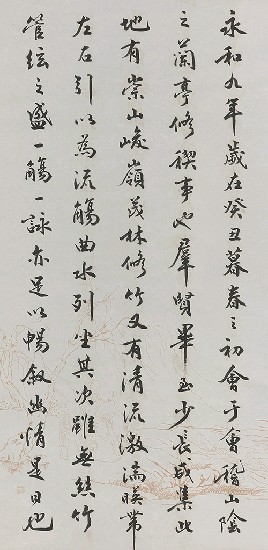 永和九年歲在癸丑暮春之初會于會稽山陰
之蘭亭脩禊事也羣賢畢至少長咸集此
地有崇山峻嶺茂林脩竹又有清流激湍暎帶
左右引以為流觴曲水列坐其次雖無絲竹
管絃之盛一觴一詠亦足以暢敘幽情是日也